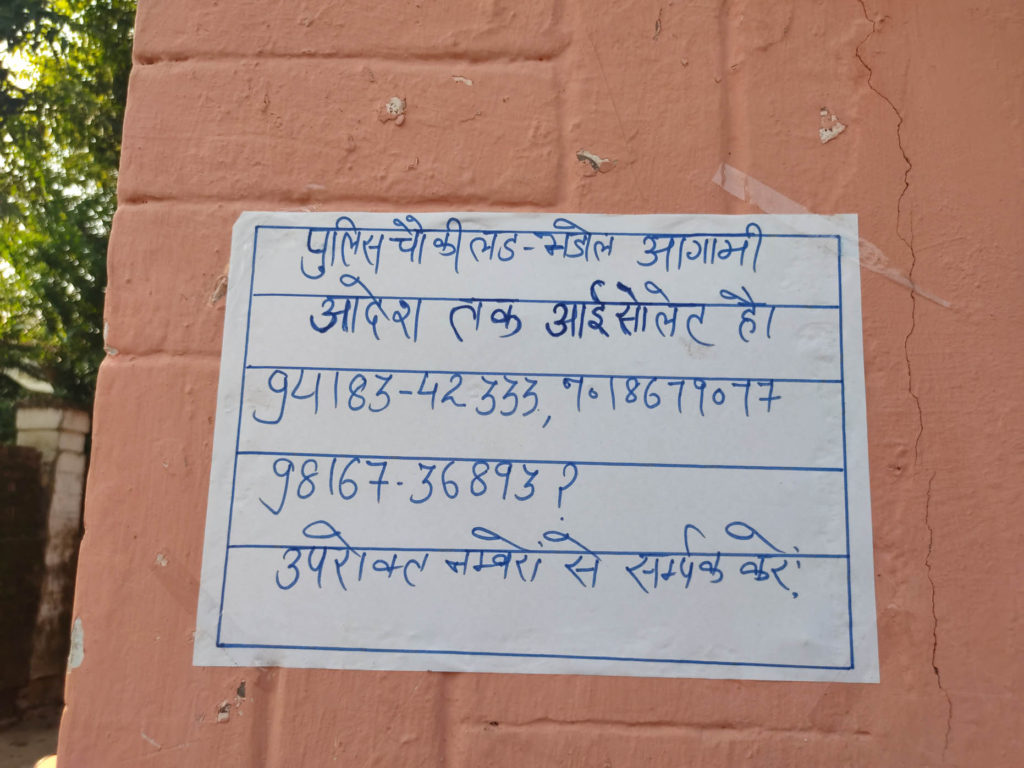 पुलिस चौकी लड-भडोल आगामी
आदेश तक आईसोलेट है।
94183-42333, 7018679077
98167-36893?
उपरोक्त नम्बेरों से सर्म्पक करें!